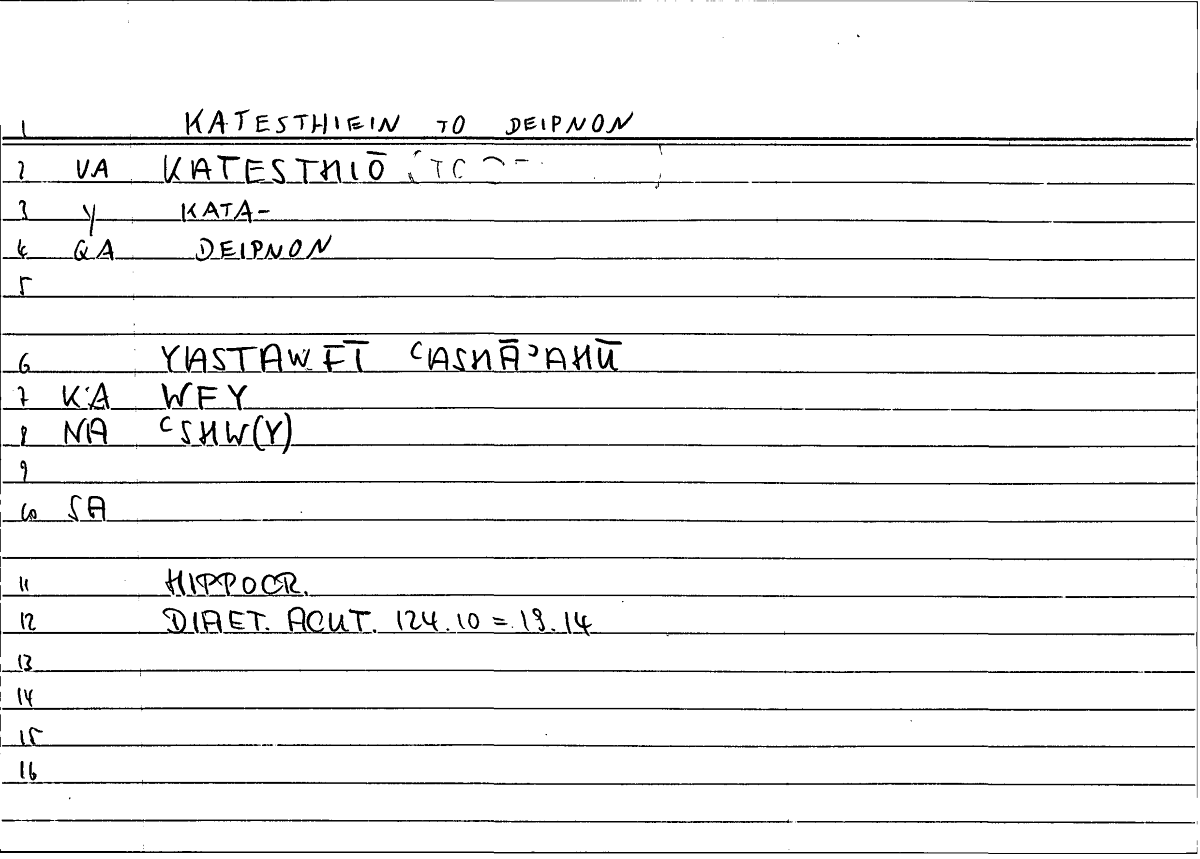 1 KATESTHIEIN TO DEIPNON
2 VA KATESTHIŌ
3 Y KATA-
4 QA DEIPNON
5
6 YASTAWFĪ ʿASHĀʾAHŪ
7 KA WFY
8 NA ʿSHW(Y)
9
10 SA
11 HIPPOCR.
12 DIAET. ACUT. 124.10 = 19.14
13
14
15
16